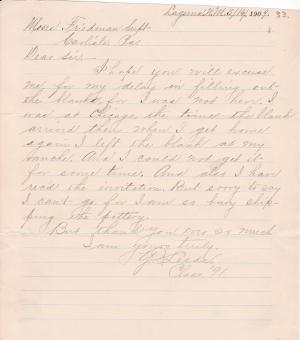 Laguna N.M. 5/19, 1909. 33.
Moses Friedman Supt.
Carlisle, Pa.
Dear Sir—
I hope you will excuse
me for my delay in filling out
the blanks for I was not here. I
was at Chicago the time the blank
arrived then when I get home
again I left the blank at my
ranche. And I could not get it
for some time. And also I have
read the invitation. But sorry to say
I can't go for I am so busy ship-
ping the pottery.
But thank you very so much
I am yours truly.
Class '91.